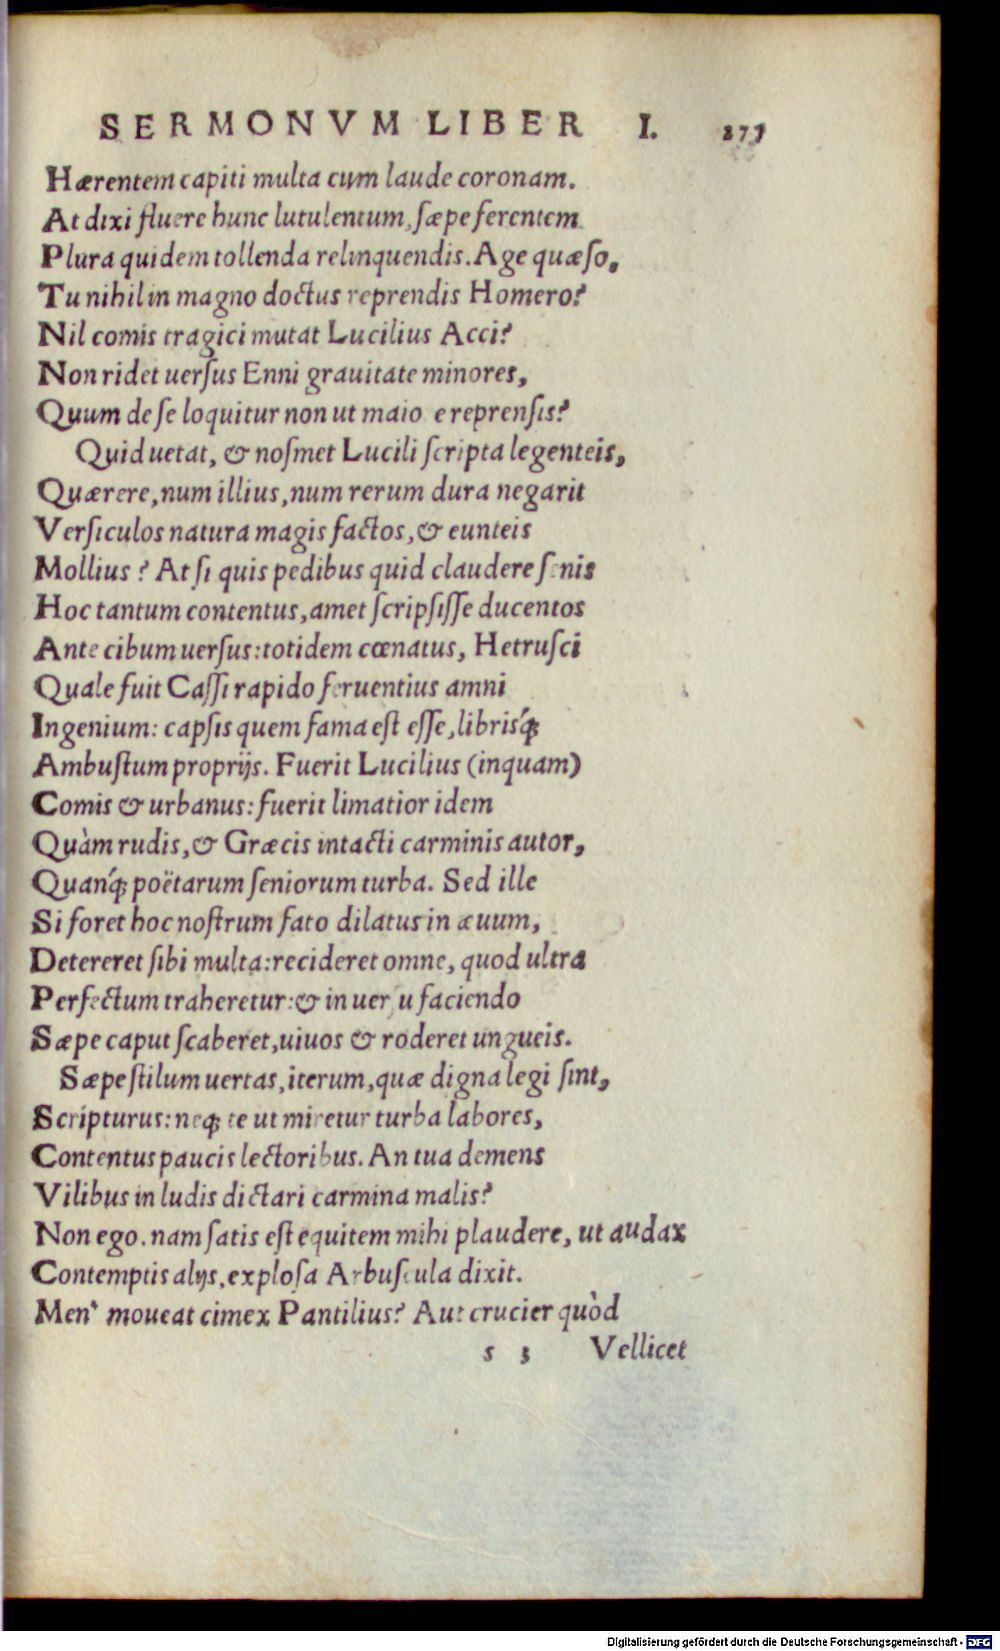 SERMONVM LIBER I. 277
Hærentem capiti multa cum laude coronam.
At dixi fluere hunc lutulentum, ſæpe ferentem
Plura quidem tollenda relinquendis. Age quæſo,
Tu nihil in magno doctus reprendis Homero?
Nil comis tragici mutat Lucilius Acci?
Non ridet uerſus Enni grauitate minores,
Quum de ſe loquitur non ut maio e reprenſis?
Quid uetat, & noſmet Lucili ſcripta legenteis,
Quærere, num illius, num rerum dura negarit
Verſiculos natura magis factos, & eunteis
Mollius? At ſi quis pedibus quid claudere ſenis
Hoc tantum contentus, amet ſcripſiſſe ducentos
Ante cibum uerſus: totidem cœnatus, Hetruſci
Quale fuit Caſſi rapido feruentius amni
Ingenium: capſis quem fama eſt eſſe, librisq́;
Ambuſtum proprijs. Fuerit Lucilius (inquam)
Comis & urbanus: fuerit limatior idem
Quàm rudis, & Græcis intacti carminis autor,
Quanq́; poëtarum ſeniorum turba. Sed ille
Si foret hoc noſtrum fato dilatus in æuum,
Detereret ſibi multa: recideret omne, quod ultra
Perfectum traheretur: & in uer u faciendo
Sæpe caput ſcaberet, uiuos & roderet ungueis.
Sæpe ſtilum uertas, iterum, quæ digna legi ſint,
Scripturus: neq; te ut miretur turba labores,
Contentus paucis lectoribus. An tua demens
Vilibus in ludis dictari carmina malis?
Non ego. nam ſatis eſt equitem mihi plaudere, ut audax
Contemptis alijs, exploſa Arbuſcula dixit.
Men' moueat cimex Pantilius? Aut crucier quòd
s 3 Vellicet
Digitalisierung gefördert durch die Deutsche Forschungsgemeinschaft - DFG